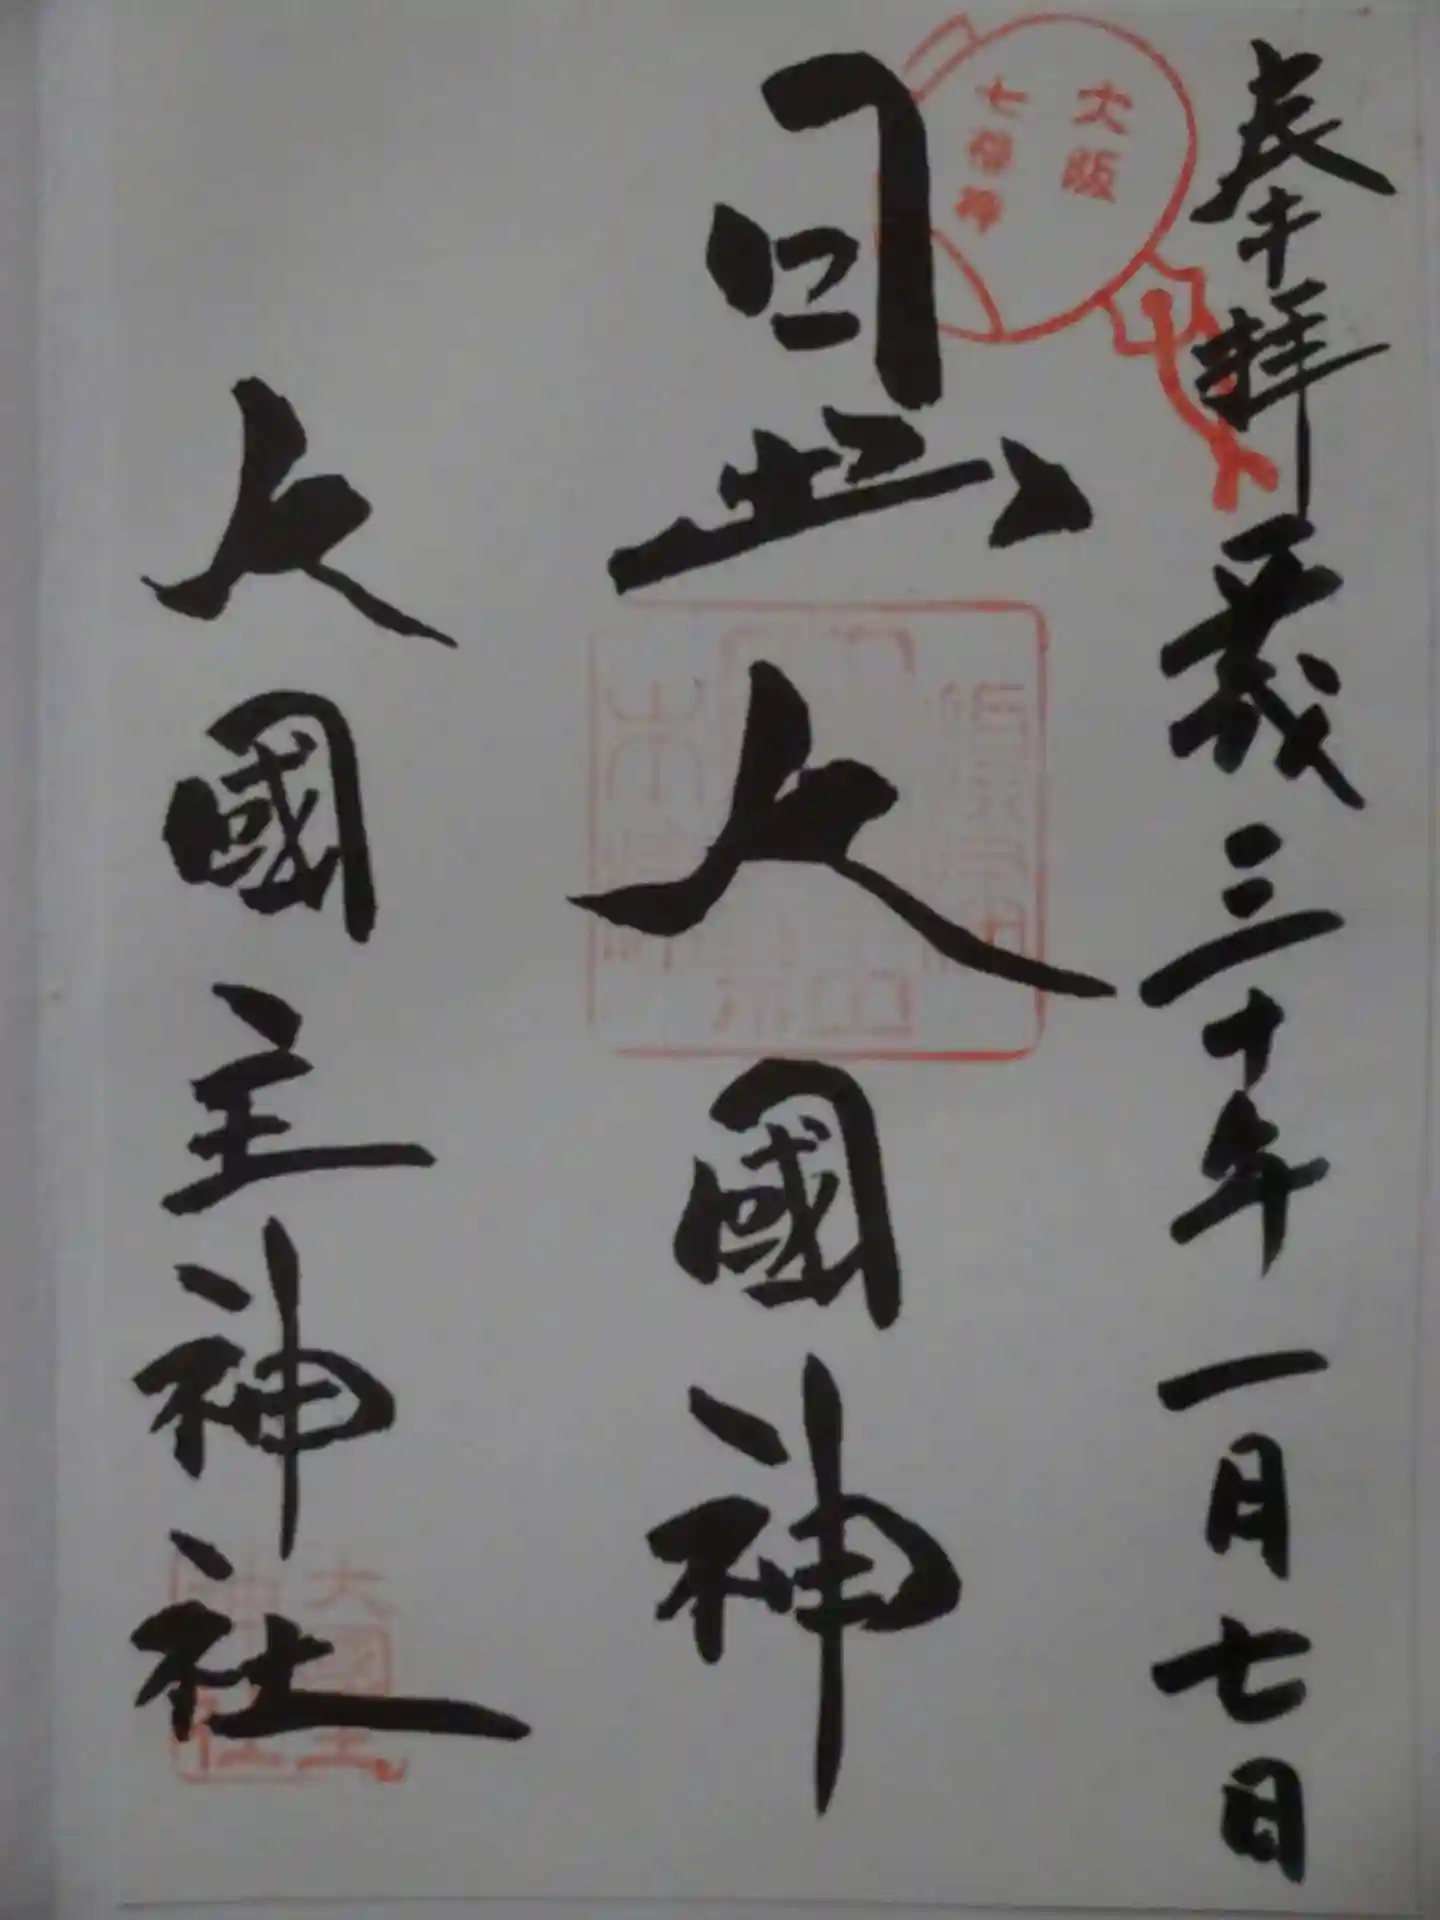 奉拝 平成三十年一月七日
大阪
七福神
日出大國神
大國主神社
大國主
神社